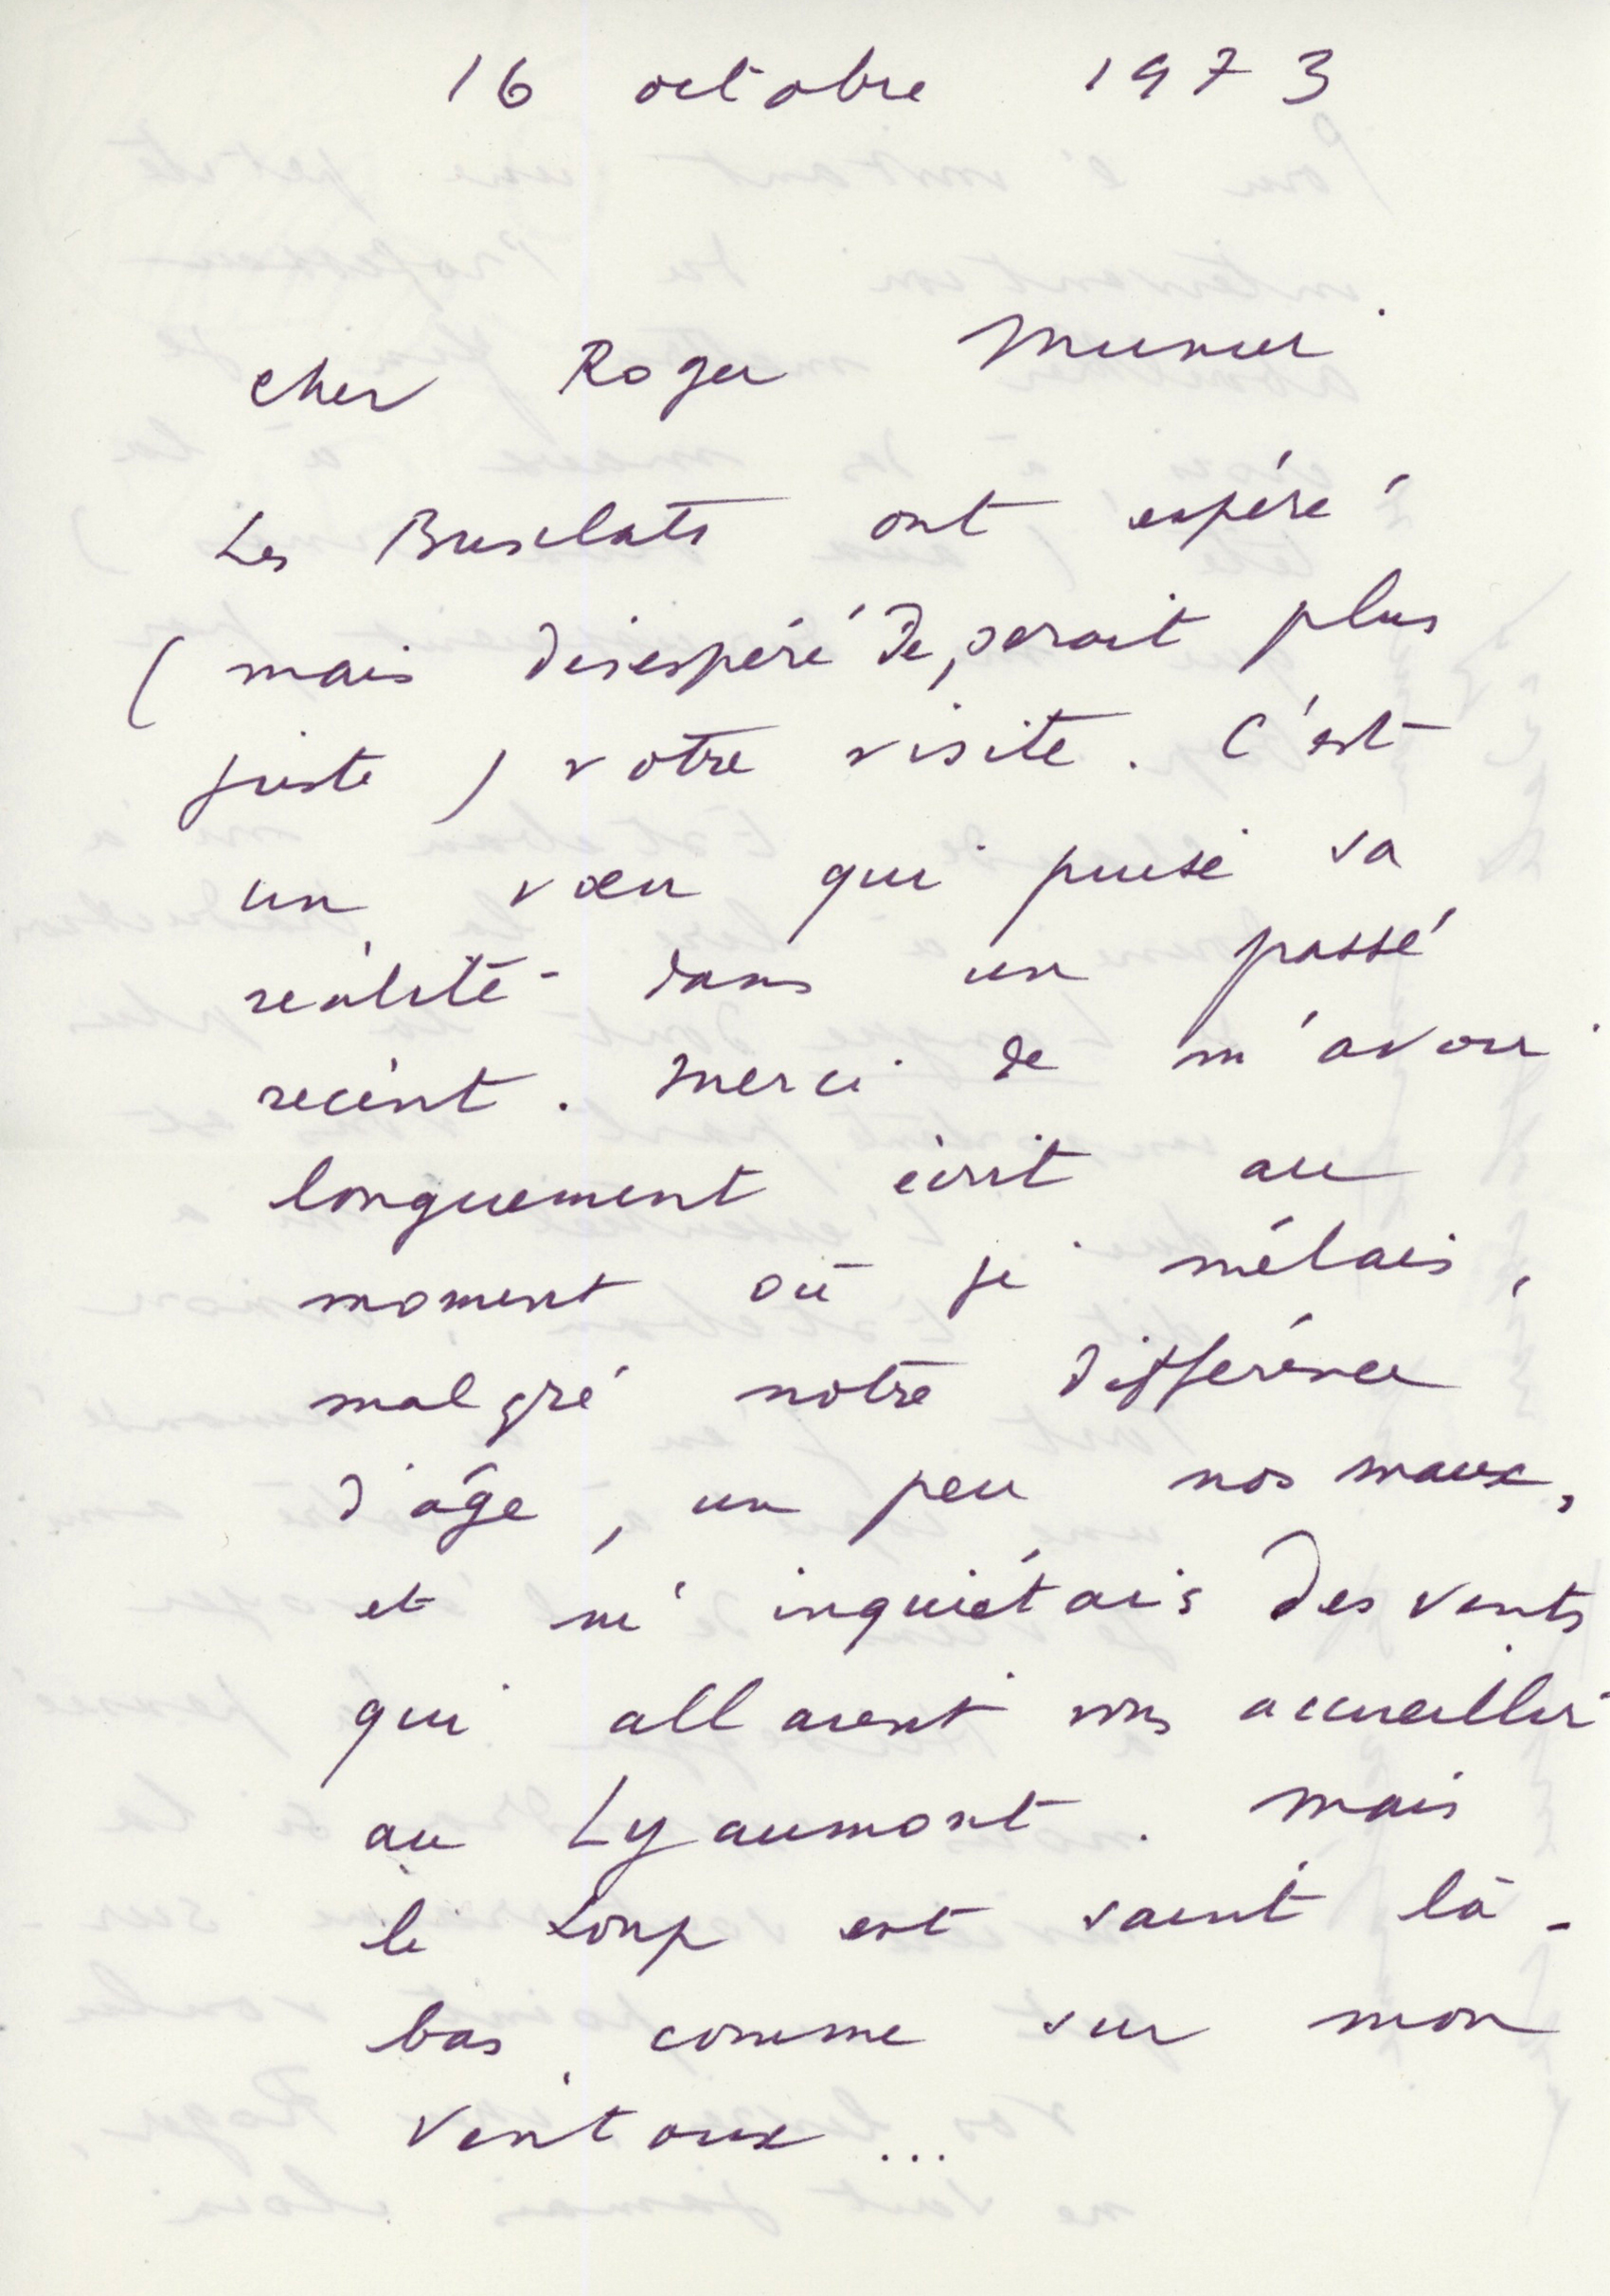 16 octobre 1973
cher Roger Munier
Les Busclats ont espéré
( mais désespéré de, serait plus
juste ) votre visite. C'est
un vœu qui puise sa
réalité dans un passé
récent. Merci de m'avoir
longuement écrit au
moment où je mêlais,
malgré notre différence
d'âge, un peu nos maux,
et m'inquiétais des vents
qui allaient vous accueillir
au Lyaumont. Mais
le Loup est saint là-
bas, comme sur mon
Ventoux...